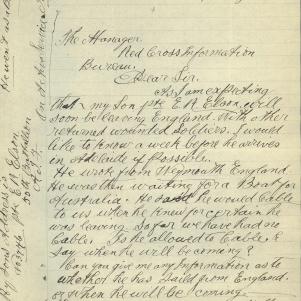 The Manager
Red Cross Information
Bureau.
Dear Sir.
As I am expecting
that my Son Pte E. A. Elson will
soon be leaving England with other
returned wounded soldiers. I would
like to know a week before he arrives
in Adelaide if Possible.
He wrote from Weymouth England
He was then waiting for a Boat for
Australia. He said he would Cable
to us when he knew for certain he
was leaving. So far we have had no
Cable. Is he allowed to Cable &
say when he will be coming?
Can you give me any Information as to
whether he has Sailed from England.
or when he will be coming
My Sons Address
Pte E. A. Elson
50th Battalion
A.I.F.